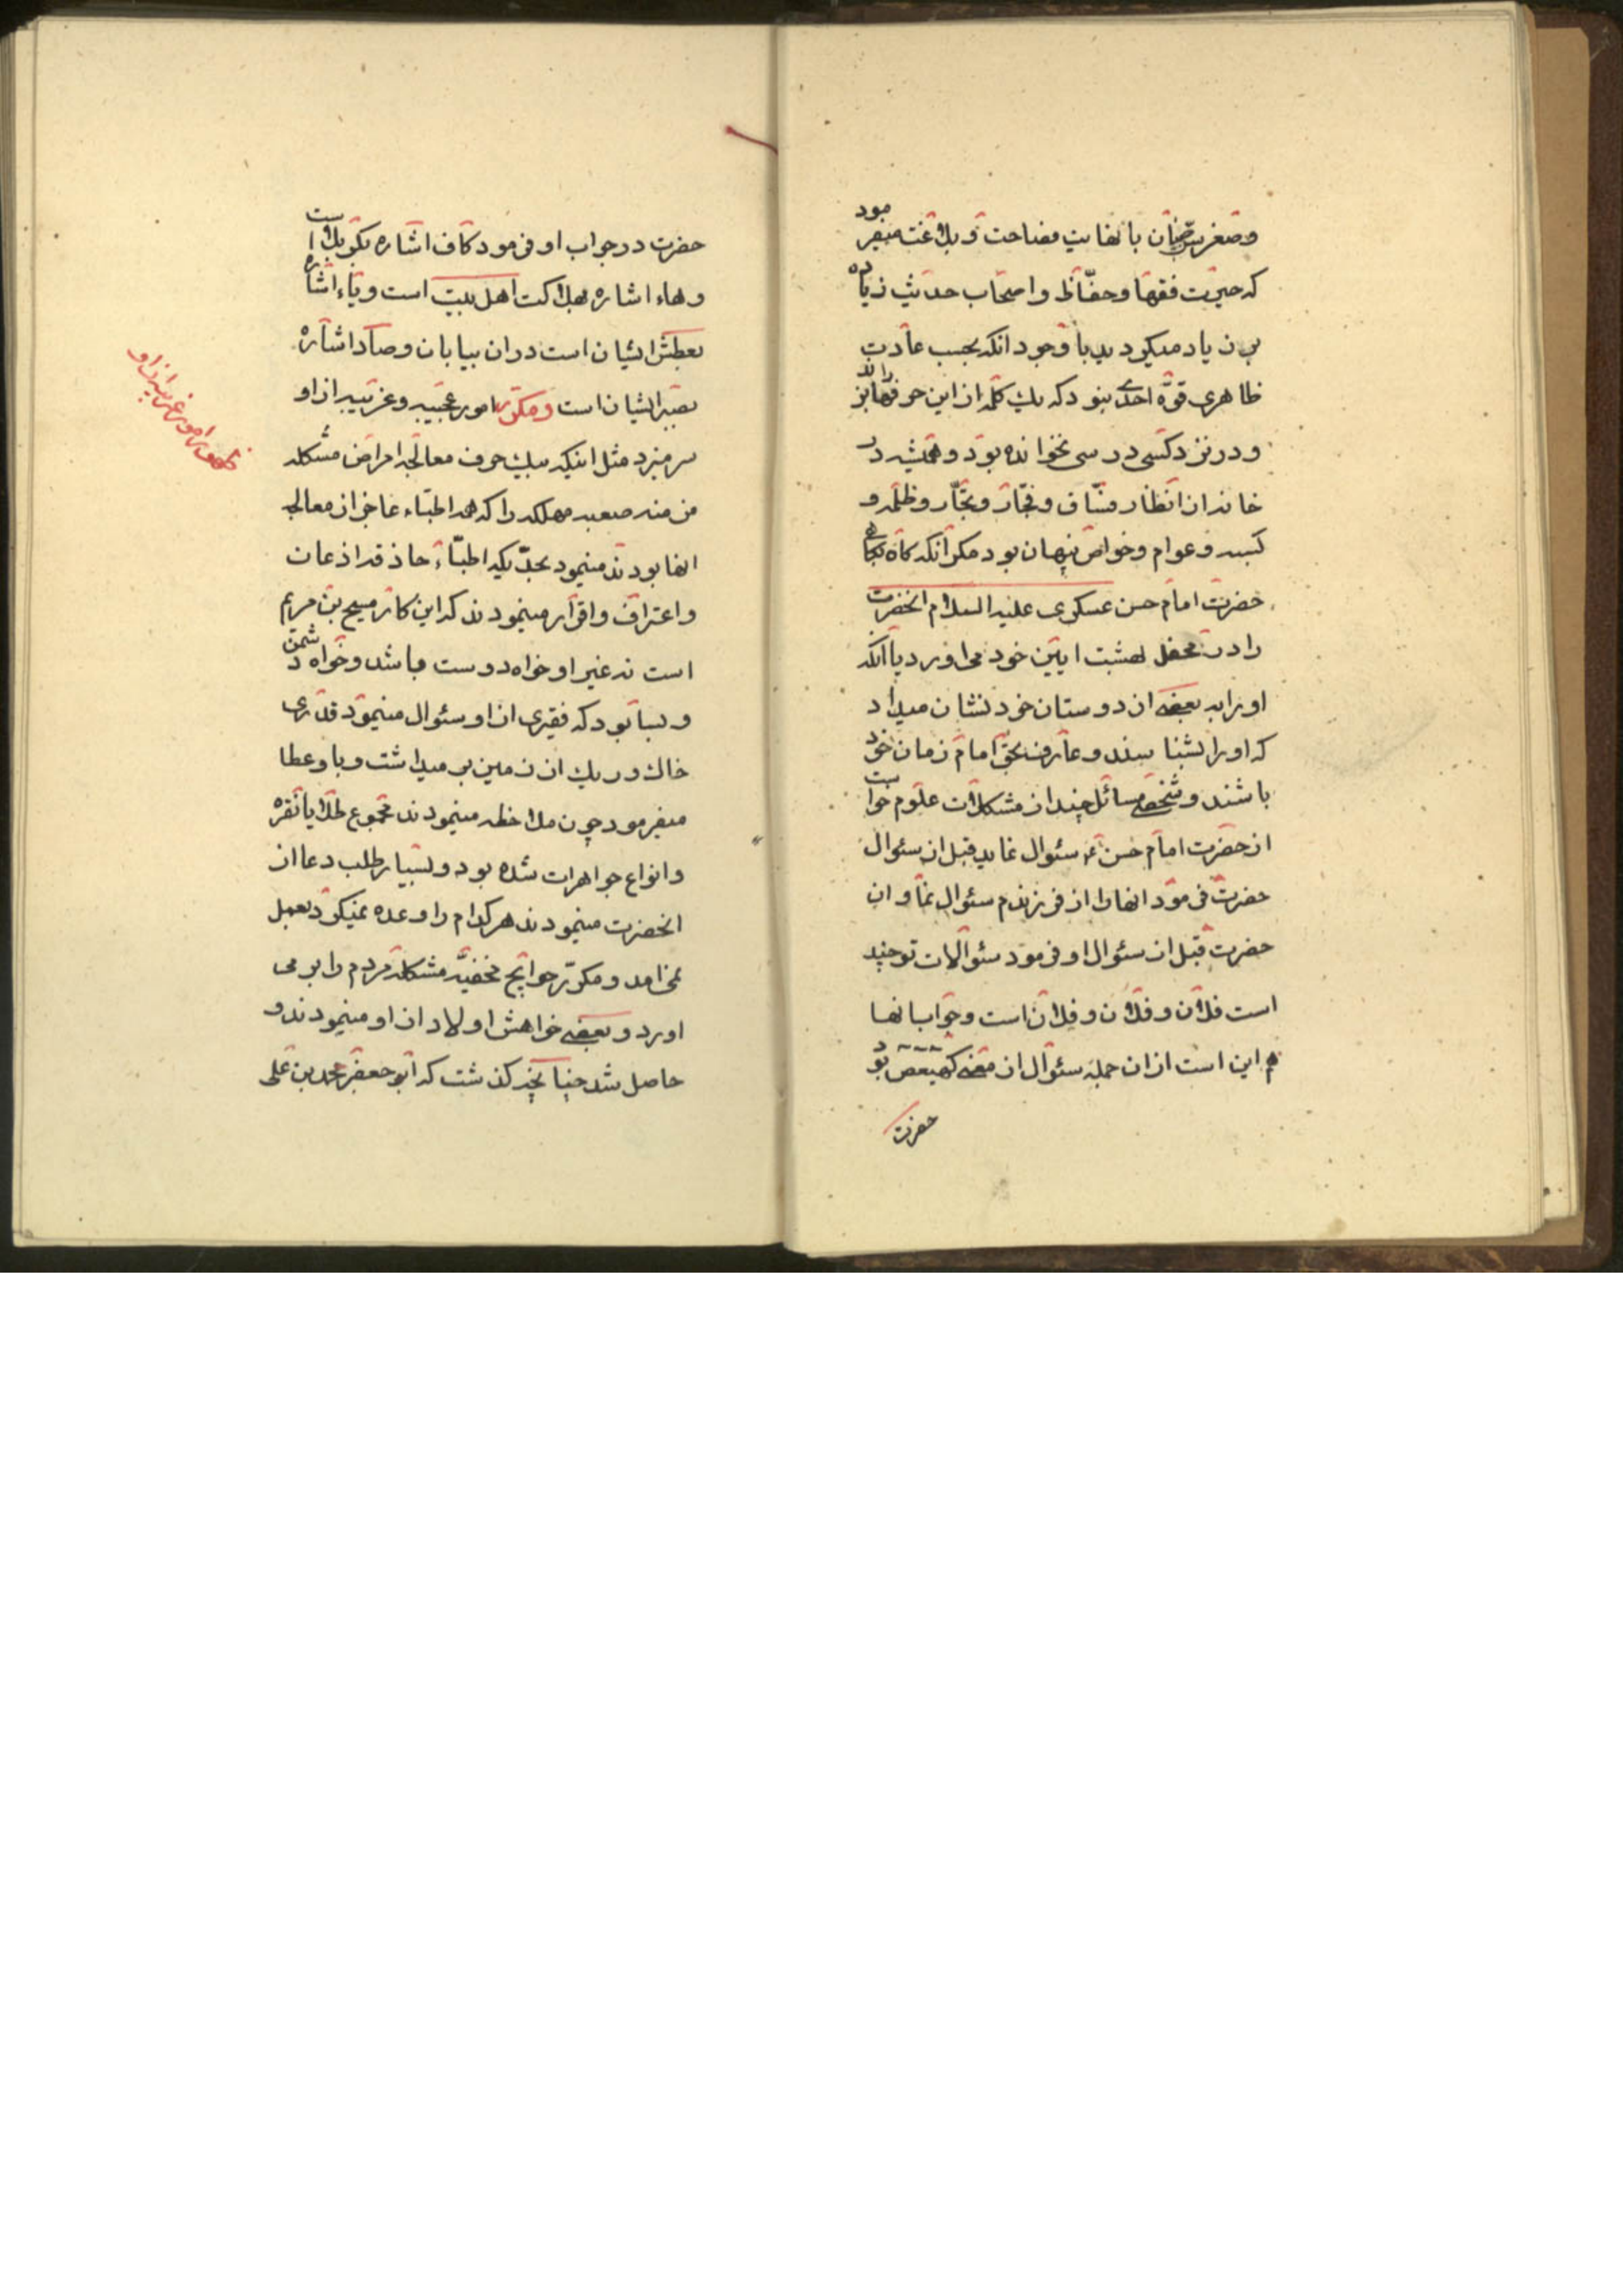 وصغر سنّ چنان با نهایت فصاحت و بلاغت میفرمود
که حیرت فقها و حفّاظ و اصحاب حدیث زیاده
بر زیاد میگردید با وجود انکه بحسب عادت
ظاهری قوّه احدی نبود که یك کلمه از این حرفها بزند
و در نزد کسی درسی نخوانده بود و همیشه در
خاندان از انظار فسّاق و فجّار و تجّار و ظلمه و
کسبه و عوام و خواص پنهان بود مکر انکه کاه کاهی
حضرت امام حسن عسکری علیه السلام انحضرت
را در محفل بهشت ایین خود می اورد یا انکه
او را به بعضی از دوستان خود نشان میداد
که او را بشناسند و عارف بحق امام زمان خود
باشند و شخصی مسائل چند از مشکلات علوم خواست
از حضرت امام حسن ع سئوال نماید قبل از سئوال
حضرت فرمود انها را از فرزندم سئوال نما و ان
حضرت قبل از سئوال او فرمود سئوالات تو چند
است فلان و فلان و فلان است و جواب انها
هم این است از ان جمله سئوال از معنی کهیعص بود
حضرت
حضرت در جواب او فرمود کاف اشاره بکربلا است
و هاء اشاره بهلاکت اهل بیت است و یاء اشاره
بعطش ایشان است در ان بیابان و صاد اشاره
بصبر ایشان است و مکرّر امور عجیبه و غریبه از او
سر میزد مثل اینکه بیك حرف معالجه امراض مشکله
مزمنه صعبه مهلکه را که همه اطبّاء عاجز از معالجه
انها بودند مینمود بحدّیکه اطبّاء حاذقه اذعان
و اعتراف و اقرار مینمودند که این کار مسیح بن مریم
است نه غیر او خواه دوست باشد و خواه دشمن
و بسا بود که فقیری از او سئوال مینمود قدری
خاك و ریك از زمین بر میداشت و باو عطا
میفرمود چون ملاحظه مینمودند مجموع طلا یا نقره
و انواع جواهرات شده بود و بسیار طلب دعا از
انحضرت مینمودند هر کدام را وعده نمیکرد بعمل
نمی امد و مکرّر حوایج مخفیّه مشکله مردم را بر می
اورد و بعضی خواهش اولاد از او مینمودند و
حاصل شد چنانچه کذشت که ابو جعفر محمد بن علی
ظهور امور غریبه از او